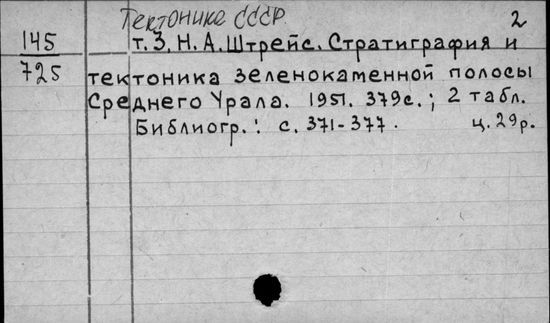 Тектонике СССР 2
145 т. 3. Н. А. Штрейс. Стратиграфия и
725 тектоника зеленокаменной полосы
Среднего Урала. 1951. 379с.; 2 табл.
Библиогр.: с. 371-377. ц. 29р.